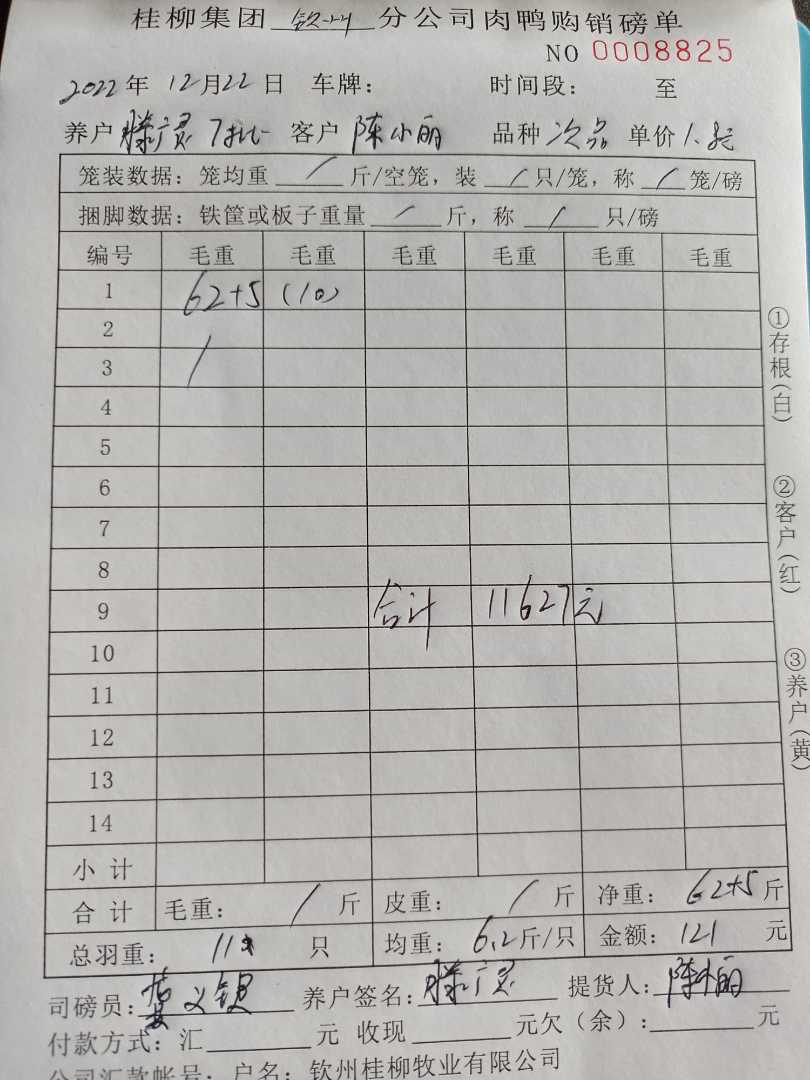 桂柳集团 钦州 分公司肉鸭购销磅单
NO 0008825
2022年 12月22日 车牌： 时间段： 至
养户 滕广灵 7批 客户 陈小丽 品种 次品 单价 1.8元
笼装数据：笼均重 / 斤/空笼，装 / 只/笼，称 / 笼/磅
捆脚数据：铁筐或板子重量 / 斤，称 / 只/磅
编号 毛重 毛重 毛重 毛重 毛重 毛重
1 62+5 (10)
2
3 /
4
5
6
7
8
9 合计 11627元
10
11
12
13
14
小计
合计 毛重： / 斤 皮重： / 斤 净重： 62+5 斤
总羽重： 只 均重： 6.2斤/只 金额： 121 元
司磅员： 养户签名： 滕广灵 提货人： 陈小丽
付款方式：汇 元 收现 元欠（余）： 元
公司汇款帐号： 户名：钦州桂柳牧业有限公司
①存根(白)
②客户(红)
③养户(黄)